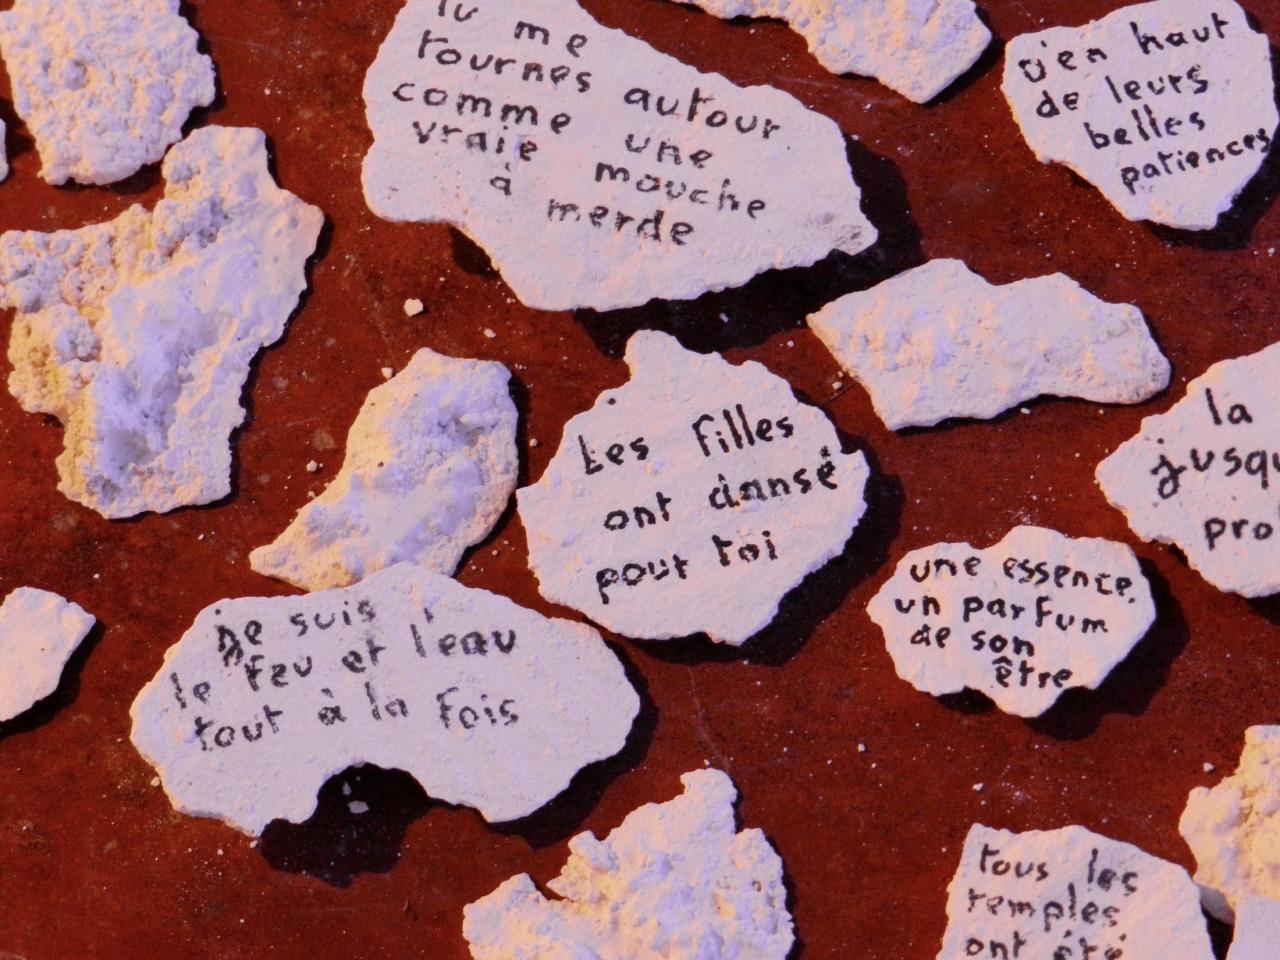 Tu me
tournes autour
comme une
vraie mouche
à merde
d'en haut
de leurs
belles
patiences
la
jusqu
pro
Les filles
ont dansé
pour toi
une essence,
un parfum
de son
être
je suis
le feu et l'eau
tout à la fois
tous les
temples
ont été